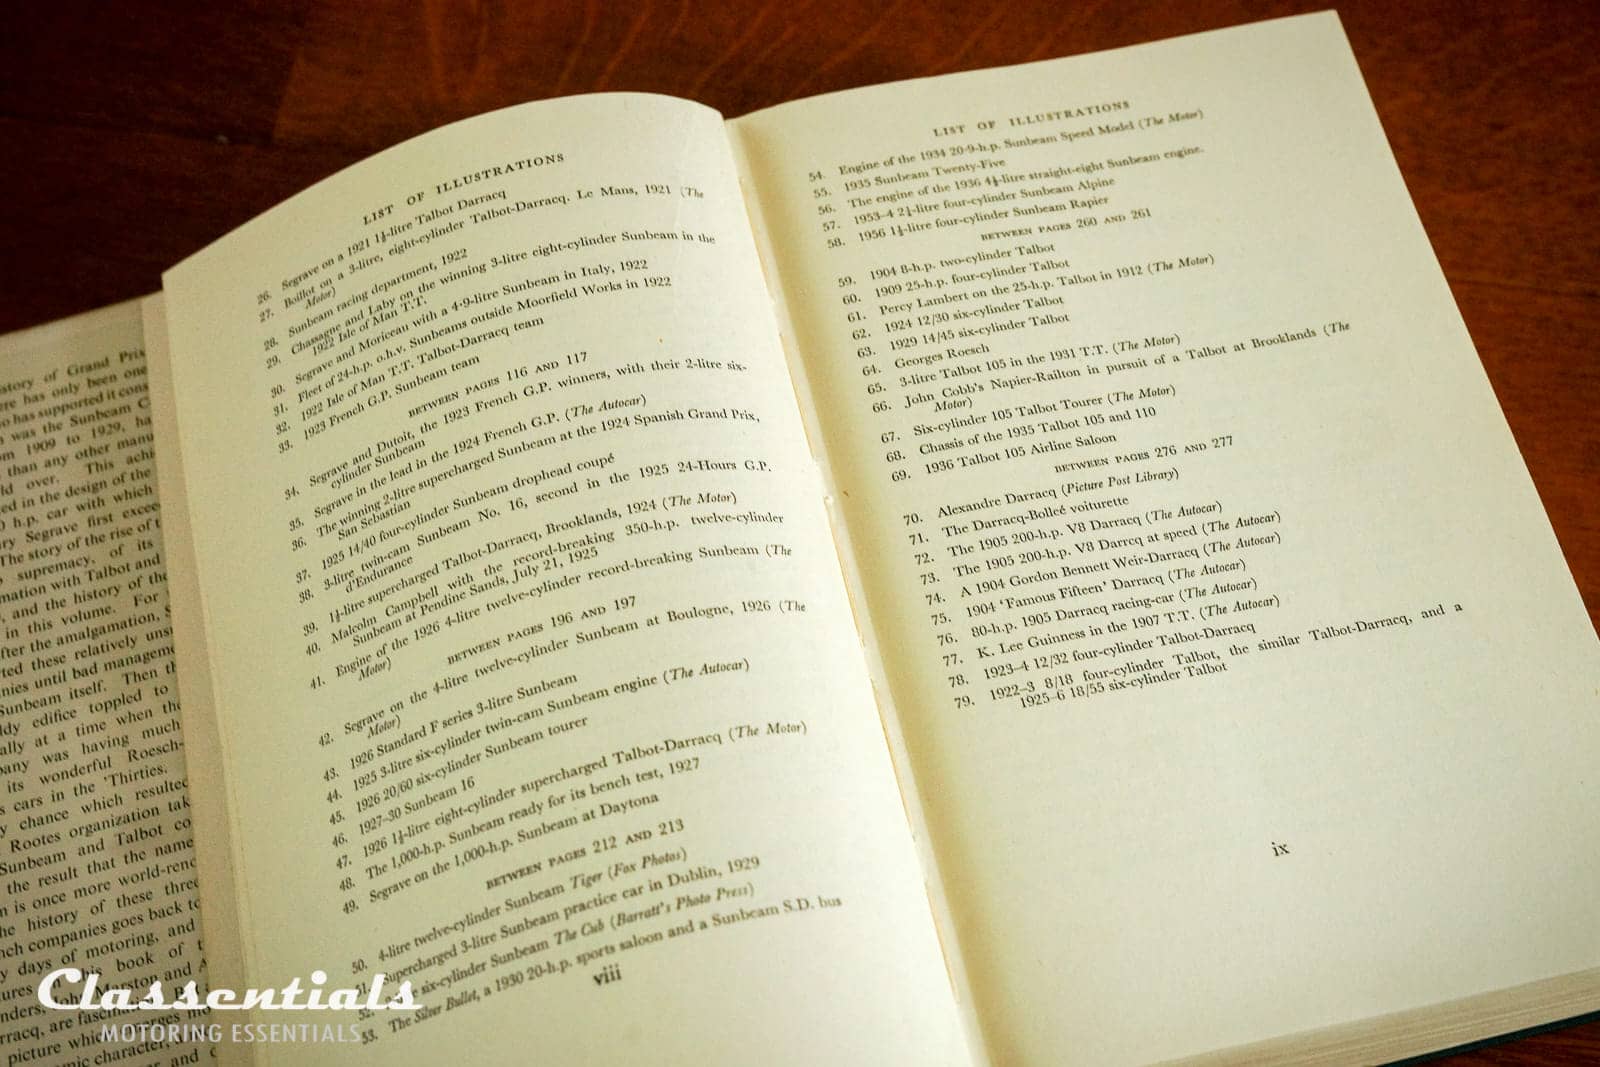 story of Grand Prix
ere has only been one
o has supported it cons
was the Sunbeam C
om 1909 to 1929, ha
than any other manu
ld over. This achi
ed in the design of the
h.p. car with which
ry Segrave first excee
The story of the rise of t
supremacy, of its
mation with Talbot and
and the history of the
in this volume. For
fter the amalgamation, S
ted these relatively unsu
nies until bad manageme
Sunbeam itself. Then th
ddy edifice toppled to
ally at a time when the
pany was having much
its wonderful Roesch-
s cars in the 'Thirties.
y chance which resulted
Rootes organization tak
Sunbeam and Talbot co
the result that the name
n is once more world-reno
he history of these three
nch companies goes back to
y days of motoring, and
tures in this book of t
nders, John Marston and A
rracq, are fascinating. But
picture which emerges
mic character,
LIST OF ILLUSTRATIONS
26. Segrave on a 1921 1½-litre Talbot Darracq
27. Boillot on a 3-litre, eight-cylinder Talbot-Darracq. Le Mans, 1921 (The
Motor)
28. Sunbeam racing department, 1922
29. Chassagne and Laby on the winning 3-litre eight-cylinder Sunbeam in the
1922 Isle of Man T.T.
30. Segrave and Moriceau with a 4·9-litre Sunbeam in Italy, 1922
31. Fleet of 24-h.p. o.h.v. Sunbeams outside Moorfield Works in 1922
32. 1922 Isle of Man T.T. Talbot-Darracq team
33. 1923 French G.P. Sunbeam team
BETWEEN PAGES 116 AND 117
34. Segrave and Dutoit, the 1923 French G.P. winners, with their 2-litre six-
cylinder Sunbeam
35. Segrave in the lead in the 1924 French G.P. (The Autocar)
36. The winning 2-litre supercharged Sunbeam at the 1924 Spanish Grand Prix,
San Sebastian
37. 1925 14/40 four-cylinder Sunbeam drophead coupé
38. 3-litre twin-cam Sunbeam No. 16, second in the 1925 24-Hours G.P.
d'Endurance
39. 1½-litre supercharged Talbot-Darracq, Brooklands, 1924 (The Motor)
40. Malcolm Campbell with the record-breaking 350-h.p. twelve-cylinder
Sunbeam at Pendine Sands, July 21, 1925
41. Engine of the 1926 4-litre twelve-cylinder record-breaking Sunbeam (The
Motor)
BETWEEN PAGES 196 AND 197
42. Segrave on the 4-litre twelve-cylinder Sunbeam at Boulogne, 1926 (The
Motor)
43. 1926 Standard F series 3-litre Sunbeam
44. 1925 3-litre six-cylinder twin-cam Sunbeam engine (The Autocar)
45. 1926 20/60 six-cylinder Sunbeam tourer
46. 1927–30 Sunbeam 16
47. 1926 1½-litre eight-cylinder supercharged Talbot-Darracq (The Motor)
48. The 1,000-h.p. Sunbeam ready for its bench test, 1927
49. Segrave on the 1,000-h.p. Sunbeam at Daytona
BETWEEN PAGES 212 AND 213
50. 4-litre twelve-cylinder Sunbeam Tiger (Fox Photos)
51. Supercharged 3-litre Sunbeam practice car in Dublin, 1929
52. six-cylinder Sunbeam The Cub (Barratt's Photo Press)
53. The Silver Bullet, a 1930 20-h.p. sports saloon and a Sunbeam S.D. bus
viii
LIST OF ILLUSTRATIONS
54. Engine of the 1934 20·9-h.p. Sunbeam Speed Model (The Motor)
55. 1935 Sunbeam Twenty-Five
56. The engine of the 1936 4½-litre straight-eight Sunbeam engine.
57. 1953–4 2¼-litre four-cylinder Sunbeam Alpine
58. 1956 1½-litre four-cylinder Sunbeam Rapier
BETWEEN PAGES 260 AND 261
59. 1904 8-h.p. two-cylinder Talbot
60. 1909 25-h.p. four-cylinder Talbot
61. Percy Lambert on the 25-h.p. Talbot in 1912 (The Motor)
62. 1924 12/30 six-cylinder Talbot
63. 1929 14/45 six-cylinder Talbot
64. Georges Roesch
65. 3-litre Talbot 105 in the 1931 T.T. (The Motor)
66. John Cobb's Napier-Railton in pursuit of a Talbot at Brooklands (The
Motor)
67. Six-cylinder 105 Talbot Tourer (The Motor)
68. Chassis of the 1935 Talbot 105 and 110
69. 1936 Talbot 105 Airline Saloon
BETWEEN PAGES 276 AND 277
70. Alexandre Darracq (Picture Post Library)
71. The Darracq-Bolleé voiturette
72. The 1905 200-h.p. V8 Darracq (The Autocar)
73. The 1905 200-h.p. V8 Darrcq at speed (The Autocar)
74. A 1904 Gordon Bennett Weir-Darracq (The Autocar)
75. 1904 'Famous Fifteen' Darracq (The Autocar)
76. 80-h.p. 1905 Darracq racing-car (The Autocar)
77. K. Lee Guinness in the 1907 T.T. (The Autocar)
78. 1923–4 12/32 four-cylinder Talbot-Darracq
79. 1922–3 8/18 four-cylinder Talbot, the similar Talbot-Darracq, and a
1925–6 18/55 six-cylinder Talbot
ix
Classentials
MOTORING ESSENTIALS